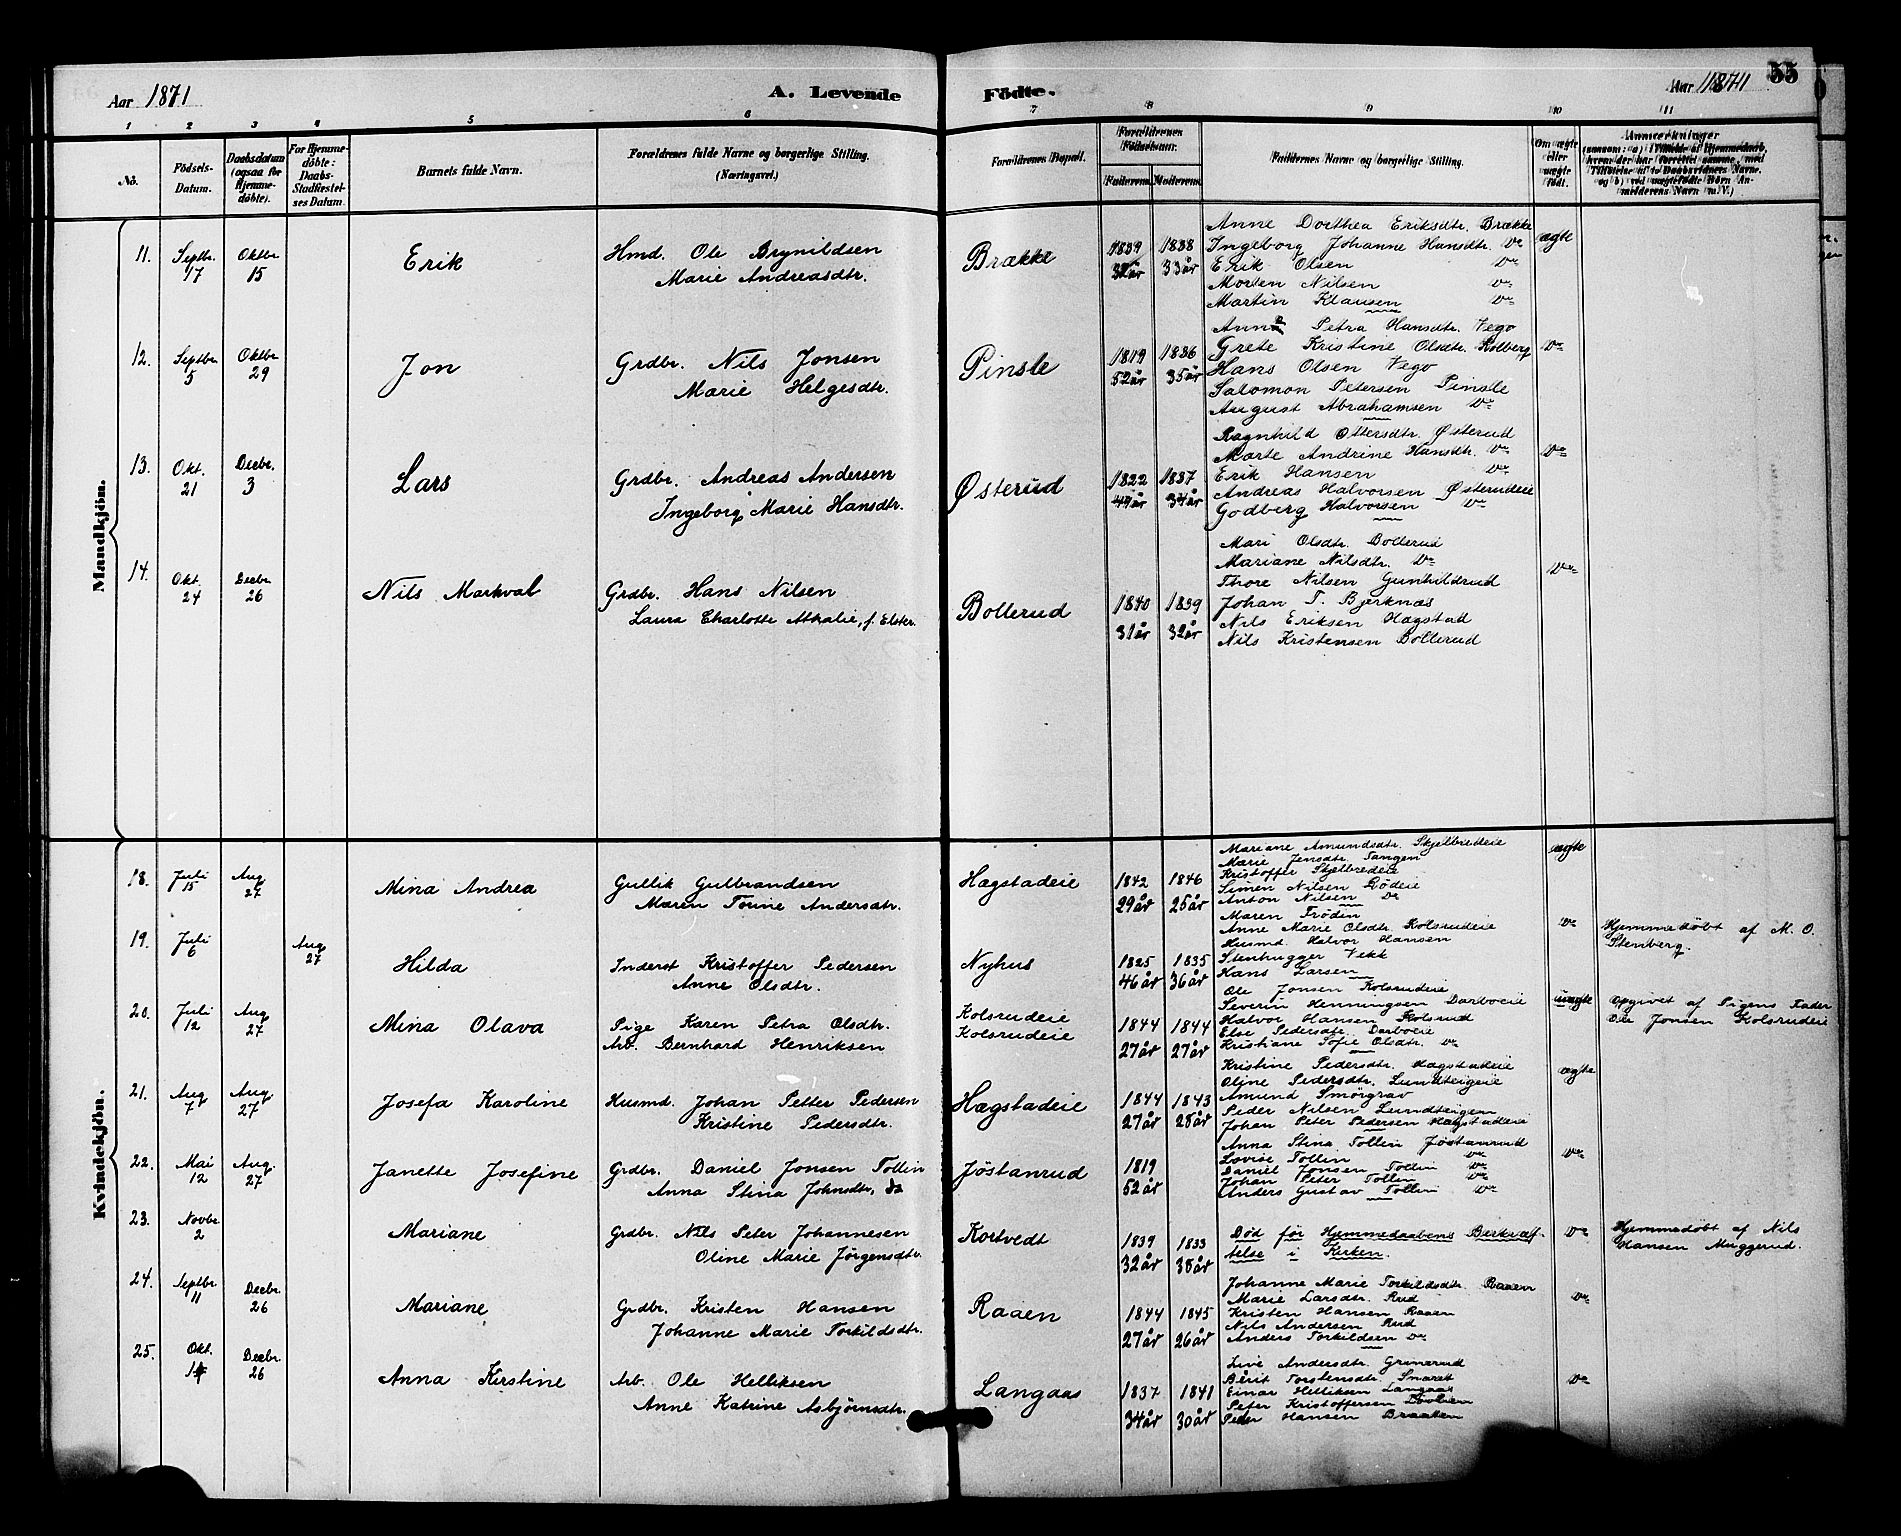 Aar 1871
A. Levende
Födte.
Aar 1871
55
1 2 3 4 5 6 7 8 9 10 11
No.
Födsels-
Datum.
Daabsdatum
(ogsaa for
Hjemme-
döbte).
For Hjemme-
döbte:
Daabs-
Stadfæstel-
ses Datum.
Barnets fulde Navn.
Forældrenes fulde Navne og borgerlige Stilling.
(Næringsvei.)
Forældrenes Bopæl.
Forældrenes
Födselsaar.
Faderens. Moderens.
Faddernes Navne og borgerlige Stilling.
Om ægte
eller
uægte
födt.
Anmærkninger
(saasom: a) Tilfælde af Hjemmedaab,
hvem der har forrettet samme, med
Tilföielse af to Daabsvidners Navne,
og b) ved uægtefödte Börn An-
melderens Navn m. V.)
Mandkjön.
11. Septbr. 17 Oktbr 15 Erik
Hmd. Ole Brynildsen
Marie Andreasdtr.
Brække
1839 1838
32 år 33 år
Anne Dorthea Eriksdtr. Brække
Ingeborg Johanne Hansdtr. Do
Erik Olsen Do
Morten Nilsen Do
Martin Klausen Do
ægte
12. Septbr. 5 Oktbr 29 Jon
Grdbr. Nils Jonsen
Marie Helgesdtr.
Pinsle
1819 1836
52 år 35 år
Anne Petra Hansdtr. Vego
Grete Kristine Olsdtr. Kolberg
Hans Olsen Vego
Salomon Petersen Pinsle
August Abrahamsen Do
Do
13. Okt. 21 Decbr. 3 Lars
Grdbr. Andreas Andersen
Ingeborg Marie Hansdtr.
Østerud
1822 1837
34 år
Ragnhild Ottersdtr. Østerud
Marte Andrine Hansdtr. Do
Erik Hansen Do
Andreas Halvorsen Østerudeie
Godberg Halvorsen Do
Do
14. Okt. 24 Decbr 26 Nils Markval
Grdbr. Hans Nilsen
Laura Charlotte Athalie, f. Elster.
Bollerud
1840 1839
31 år 32 år
Mari Olsdtr. Bollerud
Mariane Nilsdtr. Do
Thore Nilsen Gunhildrud
Johan T. Bjerknæs
Nils Eriksen Hagstad
Nils Kristensen Bollerud
Do
Kvindekjön.
18. Juli 15 Aug 27 Mina Andrea
Gullik Gulbrandsen
Maren Torine Andersdtr.
Hægstadeie
1842 1846
29 år 25 år
Mariane Amundsdtr. Skjelbredeie
Marie Jensdtr. Tangen
Kristoffer Skjelbredeie
Simen Nilsen Rødeie
Anton Nilsen Do
ægte
19. Juli 6 Aug 27 Hilda
Inderst Kristoffer Pedersen
Anne Olsdtr.
Nyhus
1825 1835
46 år 36 år
Maren Frödin
Anne Marie Olsdtr. Kolsrudeie
Husmd. Halvor Hansen
Stenhugger Vekk
Hans Larsen
Do
Hjemmedøbt af M. O.
Stenberg.
20. Juli 12 Aug 27 Mina Olava
Pige Karen Petra Olsdtr.
Arb. Bernhard Henriksen
Kolsrudeie
Kolsrudeie
1844 1844
27 år 27 år
Ole Jonsen Kolsrudeie
Severin Henningsen Darboeie
Halvor Hansen Kolsrud
Else Pedersdtr. Darboeie
Kristiane Sofie Olsdtr. Do
uægte
Opgivet af Pigens Fader
Ole Jonsen Kolsrudeie
21. Aug 7 Aug. 27 Josefa Karoline
Husmd. Johan Petter Pedersen
Kristine Pedersdtr.
Hægstadeie
1844 1843
27 år 28 år
Kristine Pedersdtr. Hægstadeie
Oline Pedersdtr. Lundteigeie
Amund Smørgrav
Peder Nilsen Lundteigen
Johan Peter Pedersen Hægstadeie
ægte
22. Mai 12 Aug. 27 Janette Josefine
Grdbr. Daniel Jonsen Tollin
Anna Stina Johnsdtr.
Jøstanrud
1819
52 år
Anna Stina Tollin Jøstanrud
Lovise Tollin Do
Daniel Jonsen Tollin Do
Johan Peter Tollin Do
Anders Gustav Tollin Do
Do
23. Novbr. 2 Mariane
Grdbr. Nils Peter Johannesen
Oline Marie Jörgensdtr.
Kortvedt
1839 1833
32 år 38 år
Død før Hjemmedaabens Bekræf-
telse i Kirken.
Do
Hjemmedøbt af Nils
Hansen Muggerud.
24. Septbr. 11 Decbr. 26 Mariane
Grdbr. Kristen Hansen
Johanne Marie Torkildsdtr.
Raaen
1844 1845
27 år 26 år
Johanne Marie Torkildsdtr. Raaen
Marie Larsdtr. Rud
Kristen Hansen Raaen
Nils Andersen Rud
Anders Torkildsen Do
Do
25. Okt. 14 Decbr. 26 Anna Kirstine
Arb. Ole Helliksen
Anne Katrine Asbjørnsdtr.
Langaas
1837 1841
34 år 30 år
Live Andersdtr. Grinerud
Berit Torstensdtr. Smørett
Einar Helliksen Langaas
Peter Kristoffersen
Peder Hansen Braaten
Do